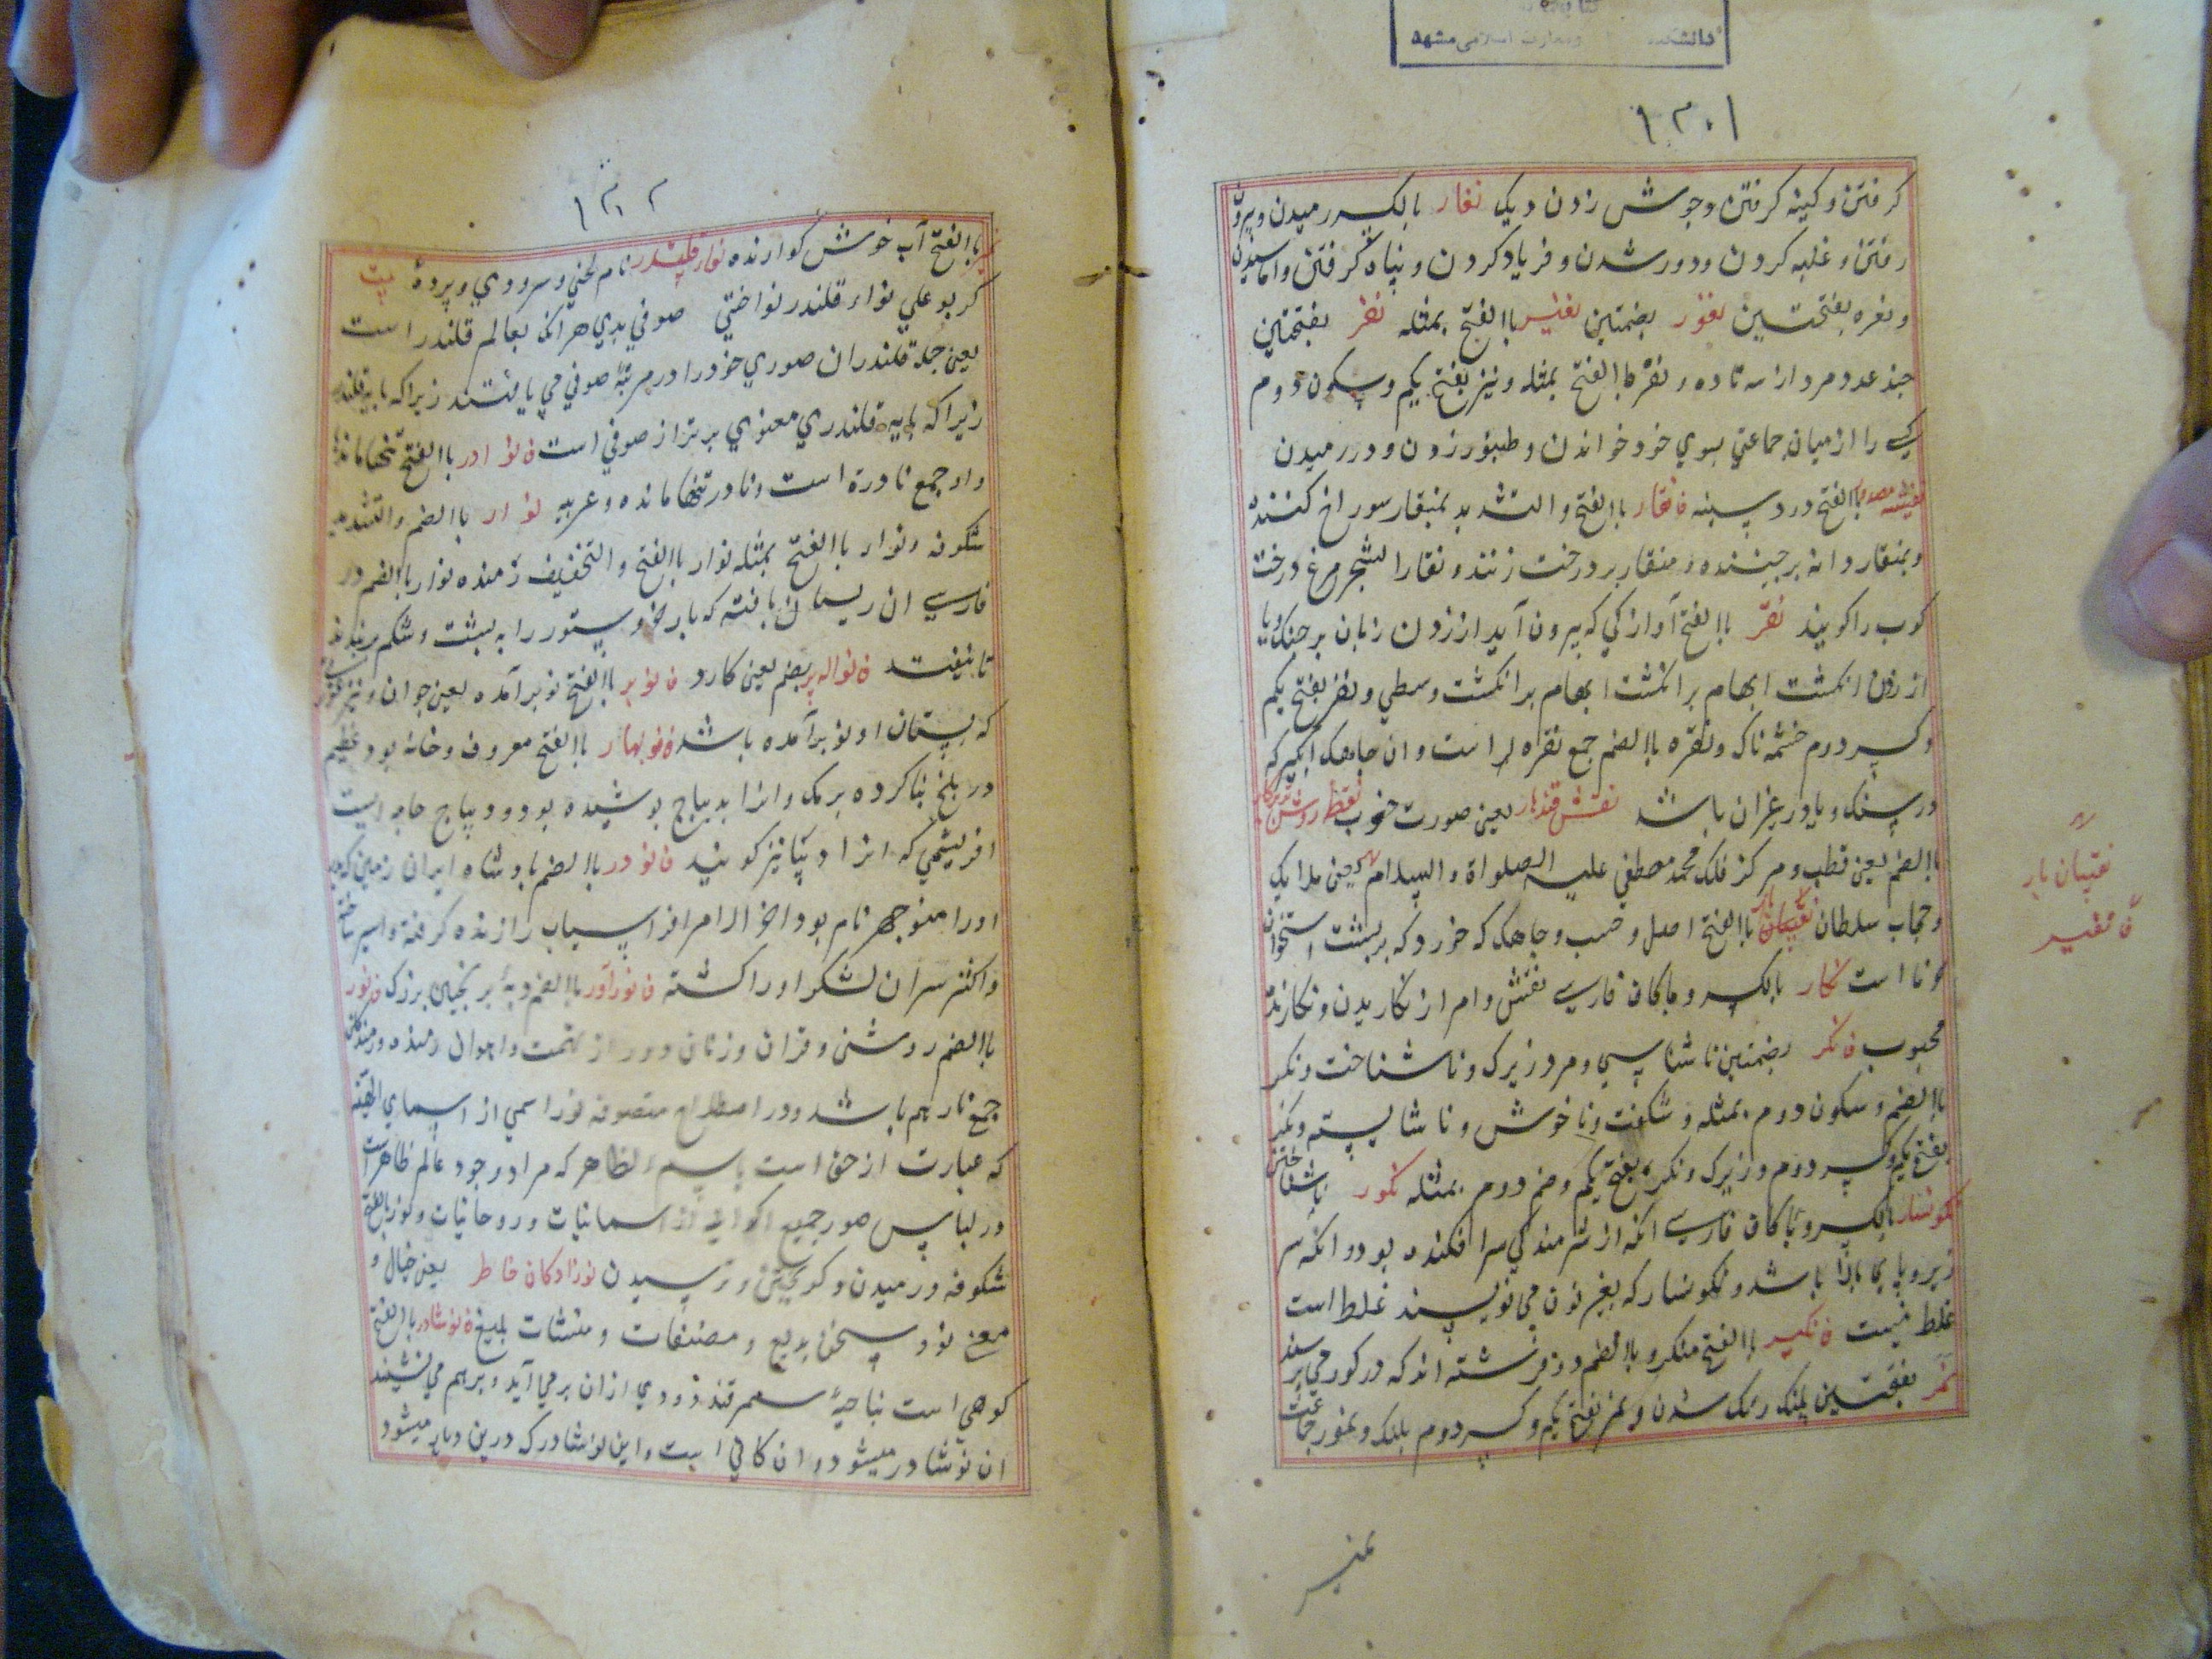 دانشکده ومعارف اسلامی مشهد
۱۳۰۱
کرفتن و کینه کرفتن وجوش زدن دیک نفار بالکسر رمیدن و بیرون
رفتن و غلبه کردن ودور شدن و فریاد کردن و پناه کرفتن واماسیدن
ونفره بفتحتین نفور بضمتین نفیر باالفتح بمثله نفر بفتحتین
چند عدد مرد از سه تا ده و نقر باالفتح بمثله و نیز بفتح یکم وسکون دوم
کسے را از میان جماعتي بسوي خود خواندن وطنبور زدن و در رمیدن
باالفتح درد سینه ف نقار باالفتح والتشدید بمنقار سوراخ کننده
وبمنقار دانه برچیننده و منقار بر درخت زننده و نقار الشجر مرغ درخت
کوب را کویند نقر باالفتح آوازکي که بیرون آید از زدن زبان بر حنک ویا
از زدن انکشت ابهام بر انکشت ابهام بر انکشت وسطي ونقر بفتح یکم
وکسر دوم خشمناک ونقره باالضم جمع نقره است وان جاهک آبگیر که
در سنک ویا در غیر ان باشد نقش قندهار یعنی صورت خوب نقطه روشن پرکار
باالضم یعنی قطب ومرکز فلک محمد مصطفي علیه الصلواة والسلام یعني ملایک
وحجاب سلطان نقیبان بار باالفتح اصل وحسب وجاهک که خورد که بر پشت استخوان
خرما است نکار بالکسر وباکاف فارسے نقش و امر از نکاریدن و نکارنده
محبوب ف نکر بضمتین ناشناسي ومرد زیرک وناشناخت ونکر
باالضم وسکون دوم بمثله و شکفت وناخوش وناشایسته ونکر
بفتح یکم وکسر دوم وزیرک ونکر بفتح یکم وضم دوم بمثله نکور ناشناختن
نکونسار بالکسر وباکاف فارسے انکه از شرمندکي سر افکنده بود وانکه سر
زیر وپاي بالا باشد ونکوسار که بغیر نون مي نویسند غلط است
غلط نیست ف نکیر باالفتح منکر و باالضم دو فرشته اند که در کور مي پرسند
نمر بفتحتین پلنک رنک شدن و نمر بفتح یکم وکسر دوم پلنک و نمور جماعت
نقیبان بار
ف نقیر
نمیر
۱۳۰۲
نمیر باالفتح آب خوش کوارنده نواء قلندر نام لحني وسرودي وپرده بیت
کر بوعلي نواء قلندر نواختي صوفي بدي هر آنکه بعالم قلندر است
یعنی جملة قلندران صوري خود را در مرتبۀ صوفي مي یافتند زیرا که پایۀ قلندر
زیراکه پایۀ قلندري معنوي برتر از صوفي است ف نوادر باالفتح تنها ماندها
واو جمع نادرة است ونادر تنها مانده وعربیه نوار باالضم والتشدید
شکوفه ونوار باالفتح بمثله نوار باالفتح والتخفیف رمنده نوار باالضم در
فارسے ان ریسمان بافته که بار خر وستور را به پشت وشکم بربندند
تا نیفتد ف نواله بر بضم یعنی کارد ف نوبر باالفتح نو برآمده یعنی جوان ونیز دختری
که پستان او نو برآمده باشد ف نوبهار باالفتح معروف وخانه بود عظیم
در بلخ بنا کرده برمک وانرا بدیباج پوشیده بود ودیباج جامه ایست
افریشمي که انرا دیبا نیز کویند ف نودر باالضم پادشاه ایران زمین که پدر
اورا منوجهر نام بود اخر الامر افراسیاب را زنده کرفته واسیر ساخته
واکثر سران لشکر اورا کشته ف نورآور باالضم وبۀ بر نجیبی بزرک ف نور
باالضم روشني وقران وزنان دور از تهمت واحوال رمنده ورمندکان
جمع نار هم باشد ودر اصطلاح متصوفه نور اسمي از اسماي الهیته
که عبارت از حق است باسم الظاهر که مراد وجود عالم ظاهر است
در لباس صور جمیع اکوانیه از اسمانیات وروحانیات ونور باالفتح
شکوفه ورمیدن وکریختن وترسیدن نوزادکان خاطر یعنی خیال و
معنی نو وسخن بدیع ومصنفات ومنشات بلیغ ف نوشادر باالفتح
کوهي است بناحیۀ سمرقند دودي ازان بر مي آید وبرهم مي نشیند
ان نوشادر میشود وان کاني است واین نوشادر که درین دیار میشود